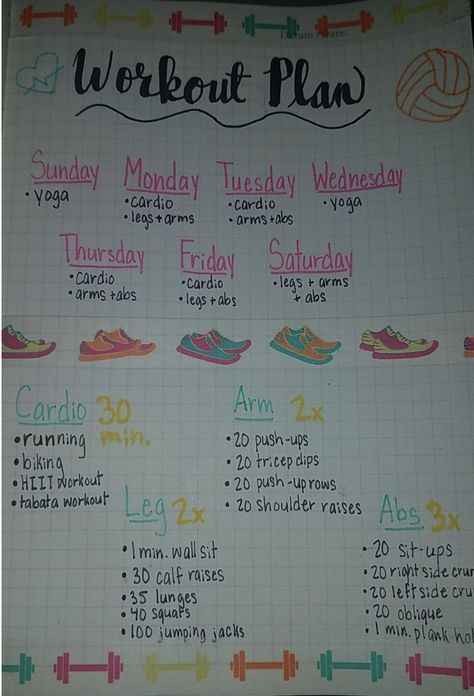 Workout Plan
Sunday
• yoga
Monday
• cardio
• legs + arms
Tuesday
• cardio
• arms + abs
Wednesday
• yoga
Thursday
• cardio
• arms + abs
Friday
• cardio
• legs + abs
Saturday
• legs + arms
+ abs
Cardio 30
min.
• running
• biking
• HIIT workout
• tabata workout
Arm 2x
• 20 push-ups
• 20 tricep dips
• 20 push-up rows
• 20 shoulder raises
Leg 2x
• 1 min. wall sit
• 30 calf raises
• 35 lunges
• 40 squats
• 100 jumping jacks
Abs 3x
• 20 sit-ups
• 20 right side crun
• 20 left side cru
• 20 oblique
• 1 min. plank hol